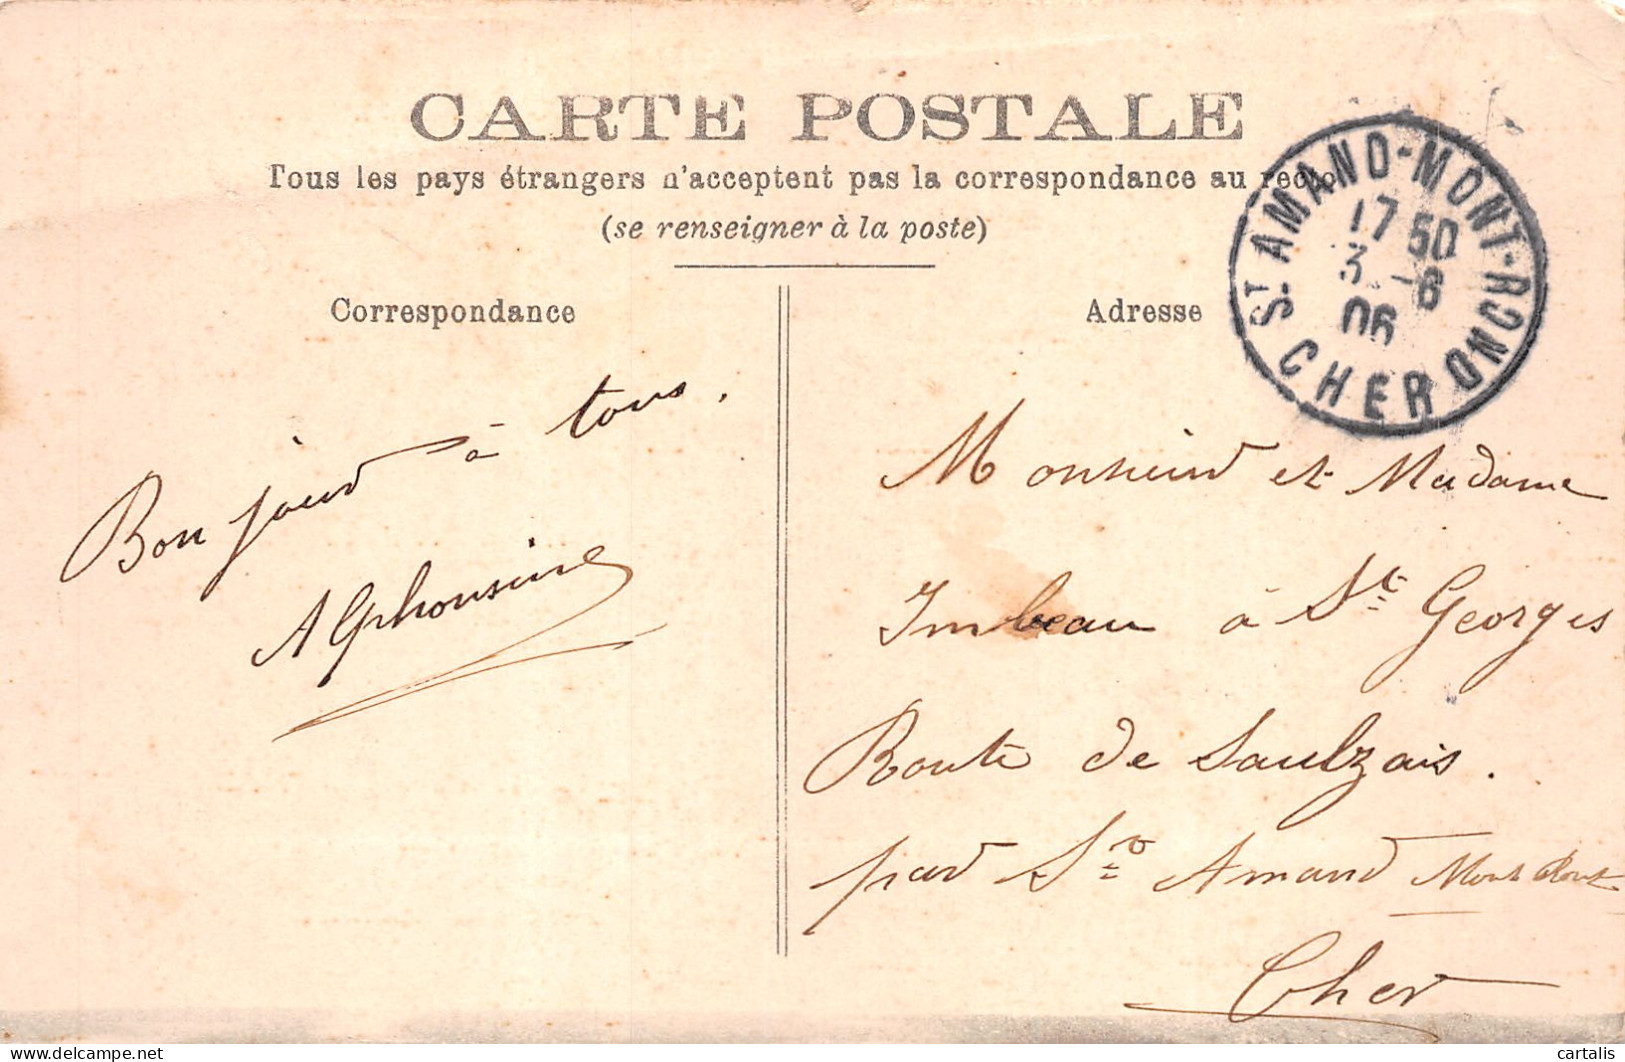 CARTE POSTALE
Tous les pays étrangers n'acceptent pas la correspondance au recto
(se renseigner à la poste)
Correspondance
Adresse
ST AMAND-MONT-ROND
17 50
3 -6
06
CHER
Bonjour à tous.
Alphonsine
Monsieur et Madame
Imbeau à St Georges
Route de Saulzais.
par St Amand Mont Rond
Cher
delcampe.net
cartalis